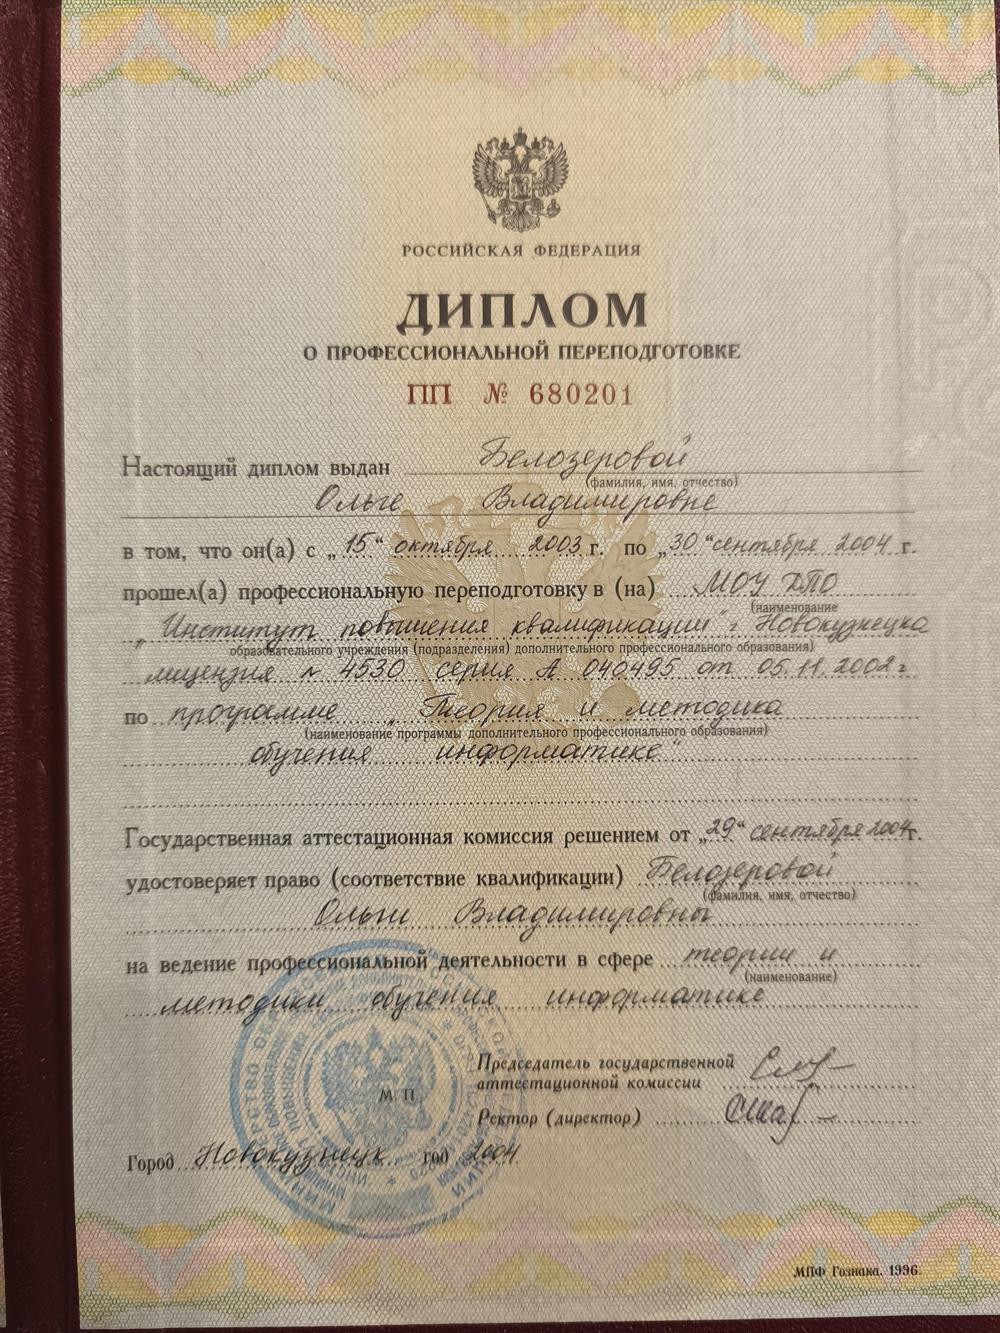 РОССИЙСКАЯ ФЕДЕРАЦИЯ
ДИПЛОМ
О ПРОФЕССИОНАЛЬНОЙ ПЕРЕПОДГОТОВКЕ
ПП № 680201
Настоящий диплом выдан Белозеровой
(фамилия, имя, отчество)
Ольге Владимировне
в том, что он(а) с „15“ октября 2003 г. по „30“ сентября 2004 г.
прошел(а) профессиональную переподготовку в (на) МОУ ДПО
(наименование
„Институт повышения квалификации" г Новокузнецка
образовательного учреждения (подразделения) дополнительного профессионального образования)
лицензия № 4530 серия А 040495 от 05.11.2002 г
по программе „Теория и методика
(наименование программы дополнительного профессионального образования)
обучения информатике“
Государственная аттестационная комиссия решением от „29“ сентября 2004г.
удостоверяет право (соответствие квалификации) Белозеровой
(фамилия, имя, отчество)
Ольги Владимировны
на ведение профессиональной деятельности в сфере теории и
(наименование)
методики обучения информатике
Председатель государственной
аттестационной комиссии
М П
Ректор (директор)
Город Новокузнецк год 2004
МПФ Гознака. 1996.